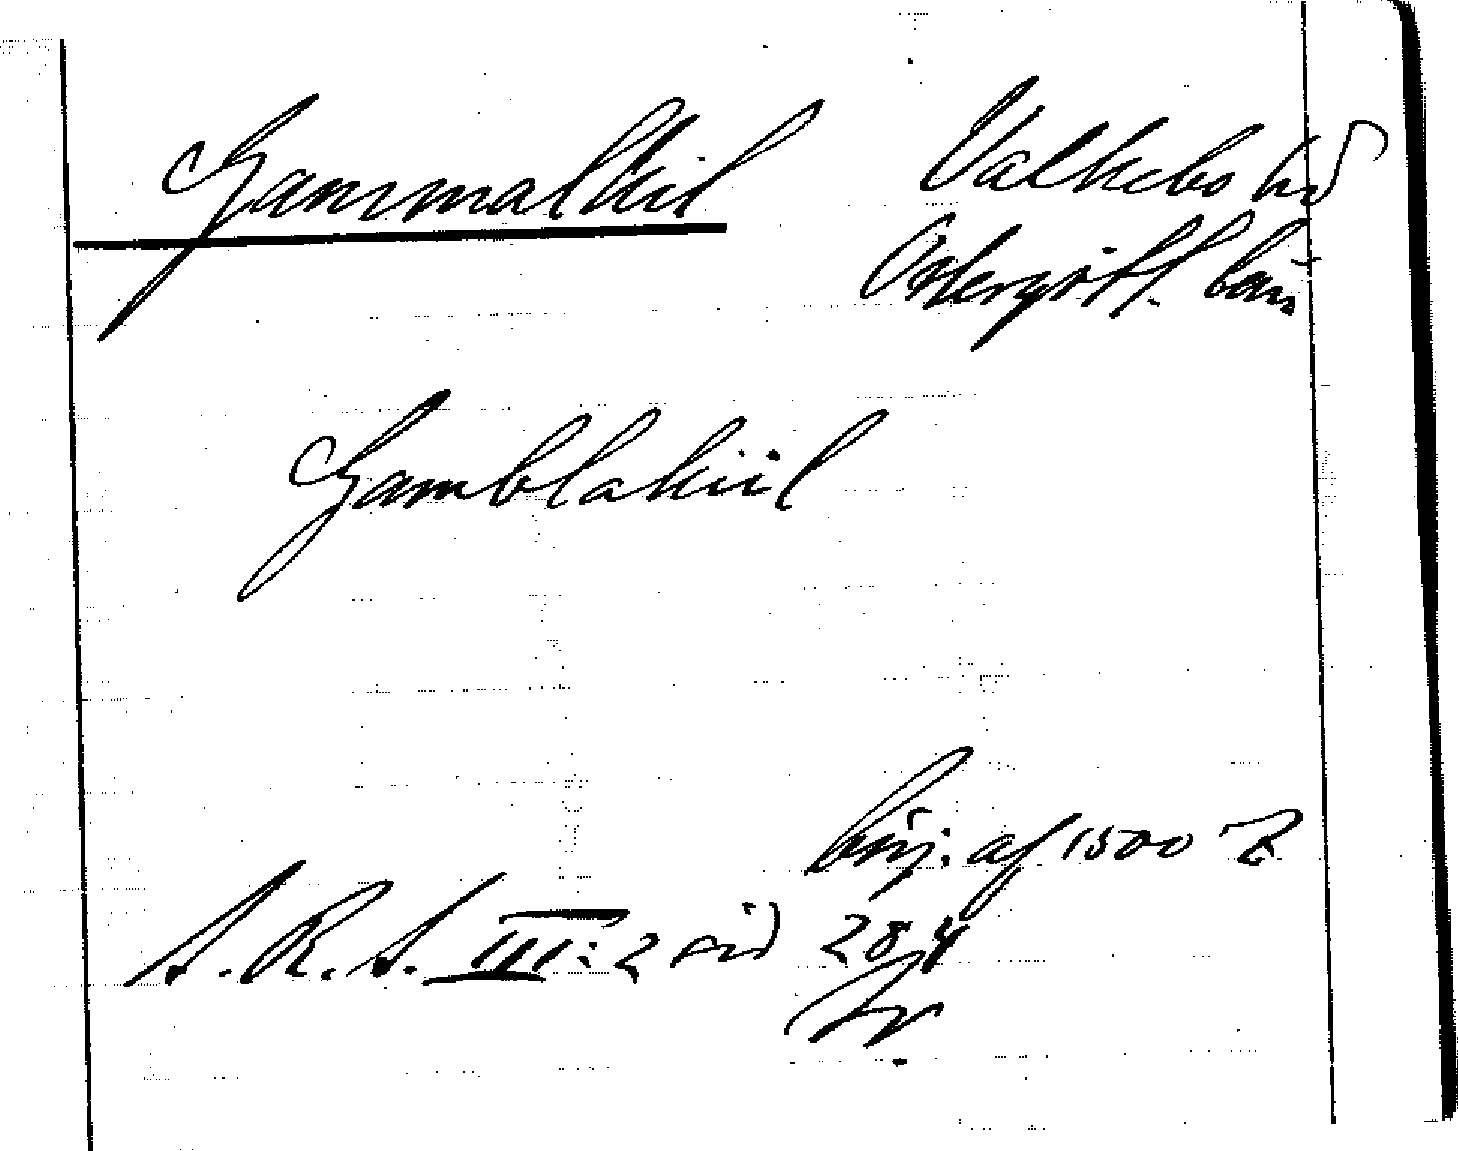 Gammalkil Valkebo hd
Östergötl. län
Gamblakiil
börj. af 1500 t.
S. R. S. III: 2 sid 284